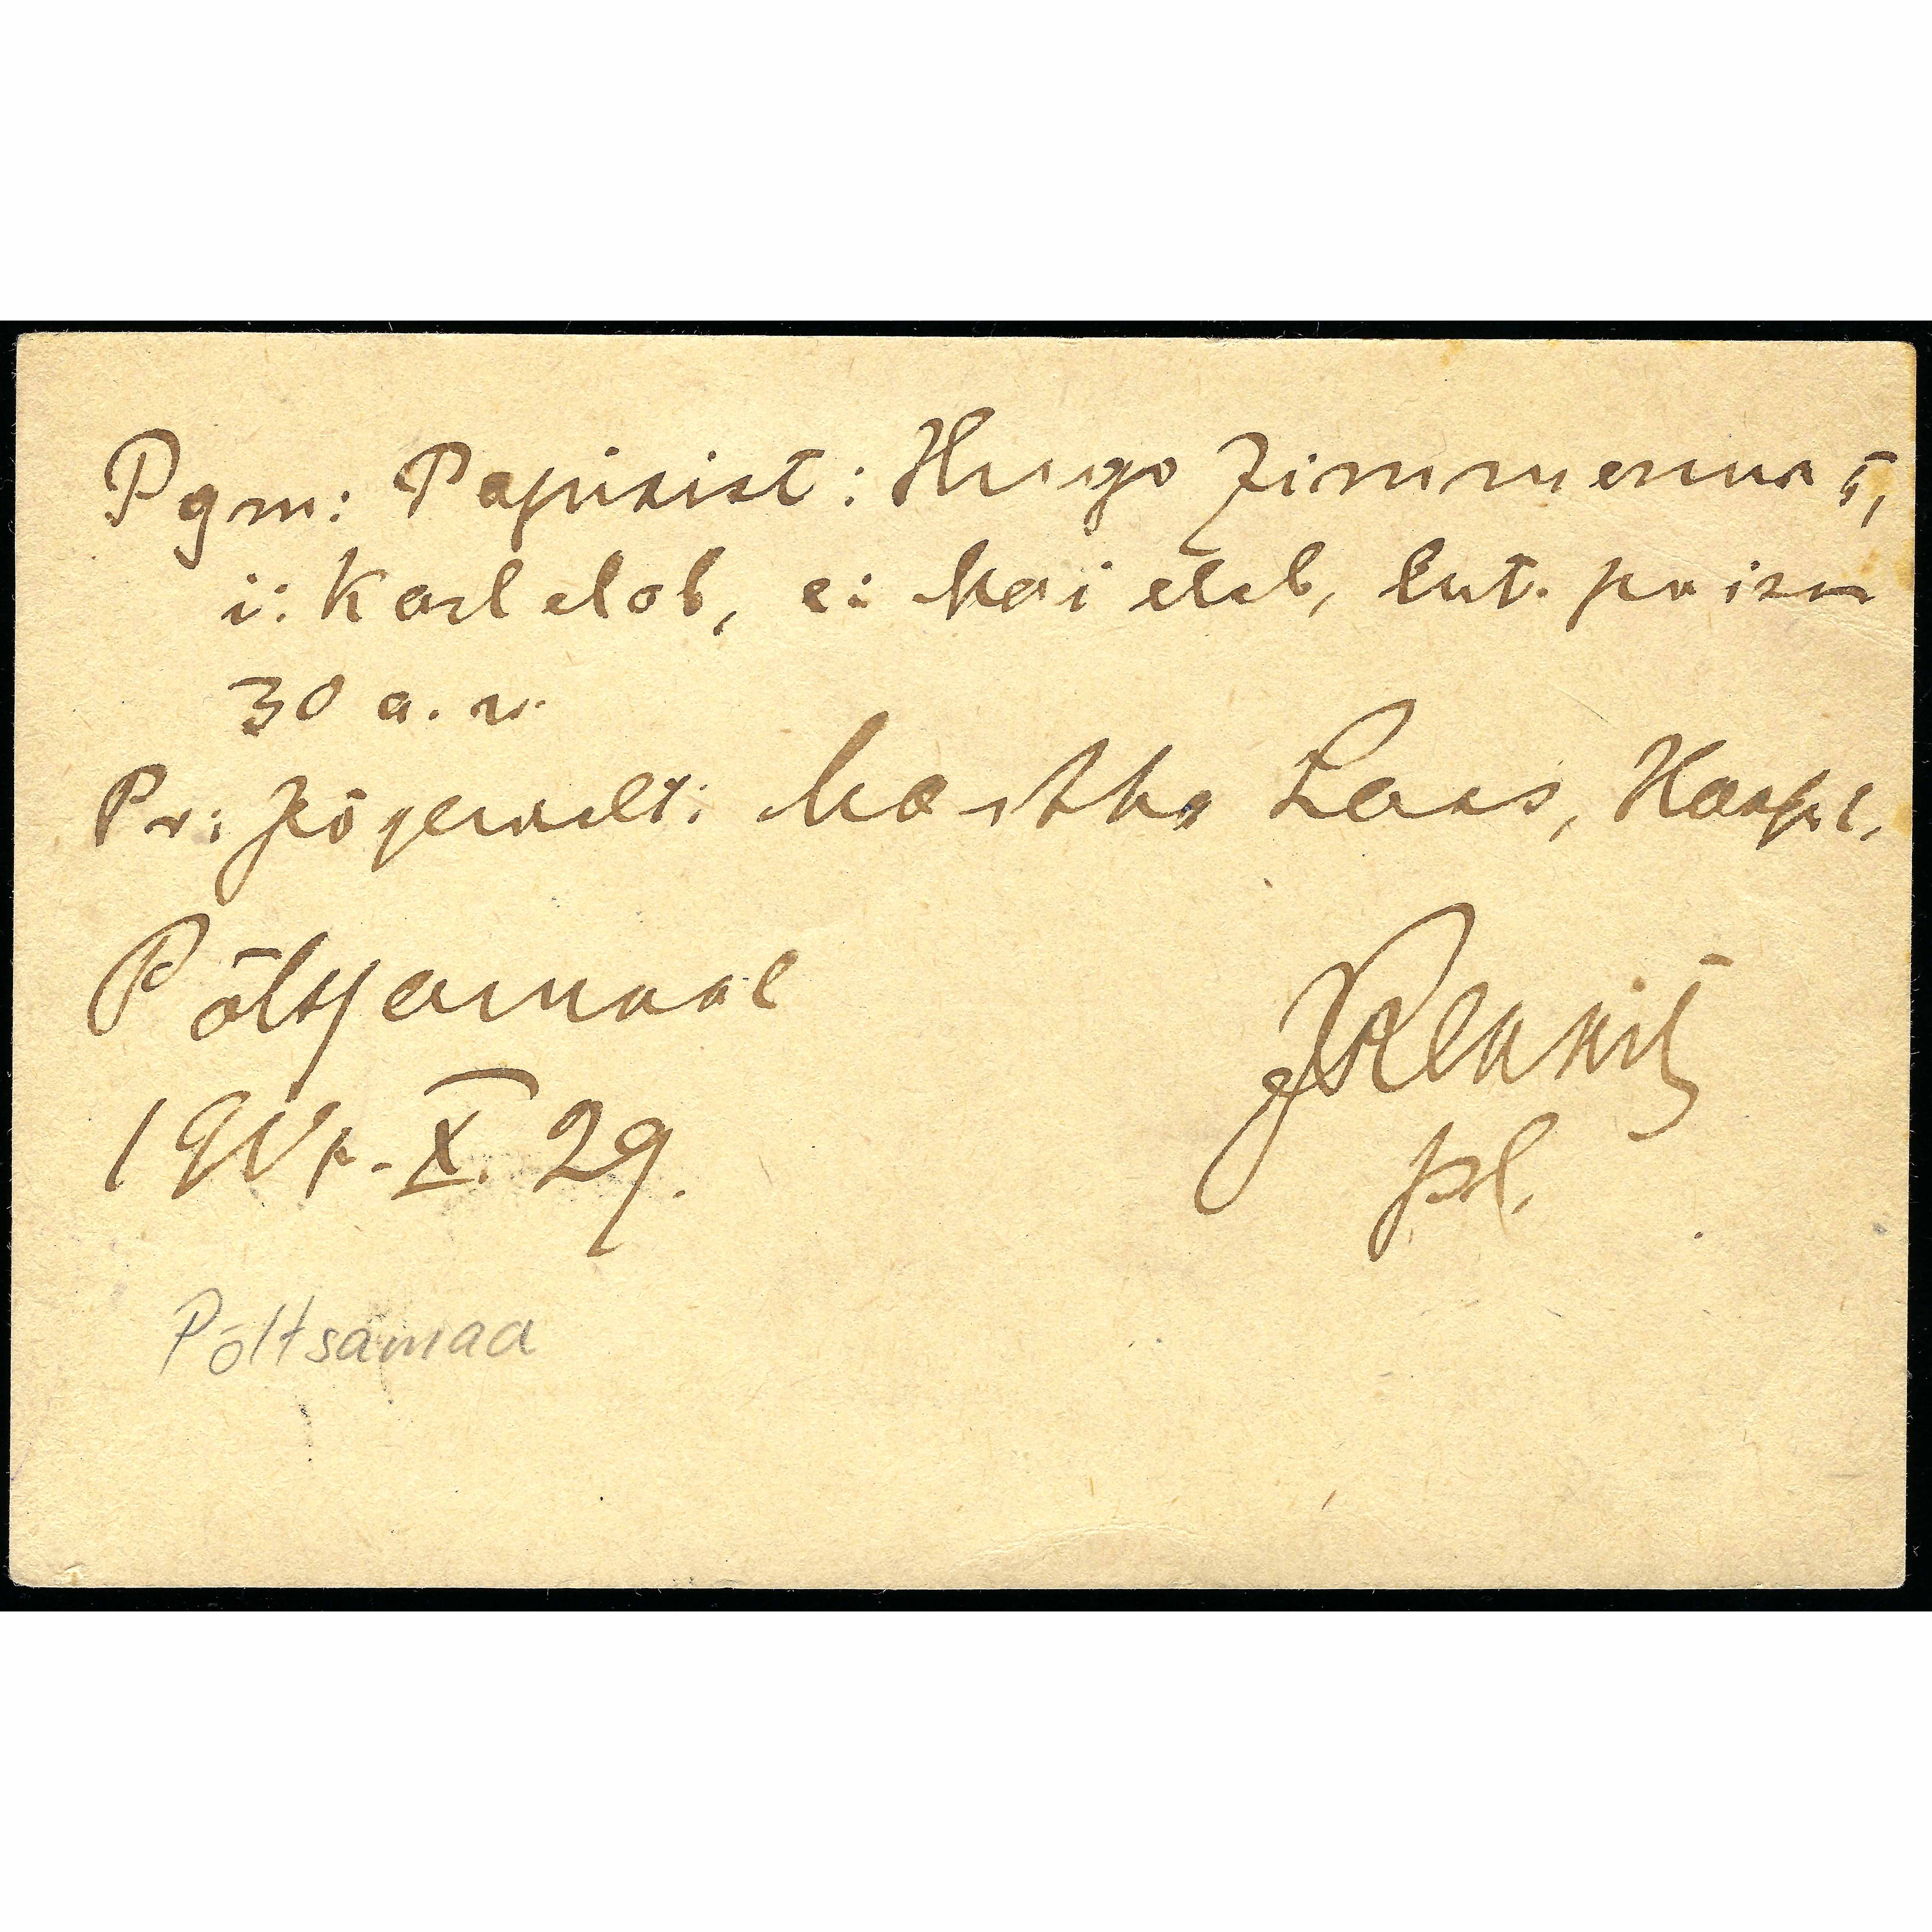 Pgm: Papisist: Hugo Zimmermann,
i: Karl elab, e: Mai elab, lut. pr isu
30 a. v.
Pr: Jõgevalt: Martha Laas, Haapl.
Põltsamaal
X. 29.
pl.
Põltsamaa